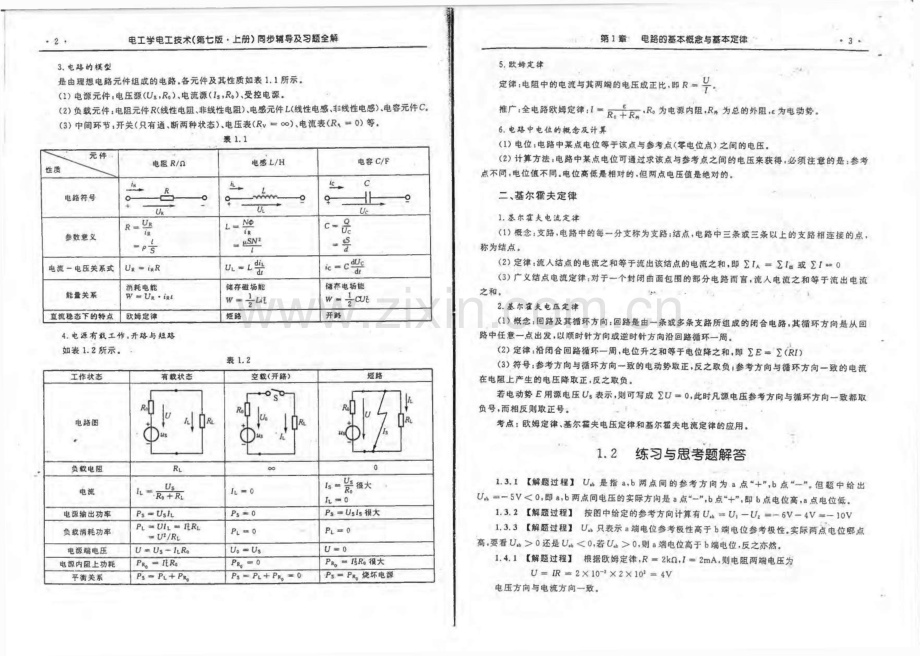 · 2 ·
电工学电工技术(第七版·上册)同步辅导及习题全解
3.电路的模型
是由理想电路元件组成的电路。各元件及其性质如表 1.1 所示。
(1) 电源元件:电压源(Us,R₀)、电流源(Is,R₀)、受控电源。
(2) 负载元件:电阻元件 R(线性电阻、非线性电阻)、电感元件 L(线性电感、非线性电感)、电容元件 C。
(3) 中间环节:开关(只有通、断两种状态)、电压表(Rv = ∞)、电流表(RA = 0) 等。
表 1.1
元件 性质 电阻 R/Ω 电感 L/H 电容 C/F
电路符号 iR R UR iL L UL iC C UC
参数意义 R = UR/iR = ρ l/S L = NΦ/iR = μSN²/l C = Q/UC = εS/d
电流－电压关系式 UR = iRR UL = L diL/dt iC = C dUC/dt
能量关系 消耗电能 W = UR · iRt 储存磁场能 W = 1/2 Li²L 储存电场能 W = 1/2 CU²C
直流稳态下的特点 欧姆定律 短路 开路
4.电源有载工作、开路与短路
如表 1.2 所示。
表 1.2
工作状态 有载状态 空载(开路) 短路
电路图 R₀ us U IL RL R₀ us U₀ S IL RL R₀ us U Is IL RL
负载电阻 RL ∞ 0
电流 IL = Us/(R₀ + RL) IL = 0 Is = Us/R₀ 很大 IL = 0
电源输出功率 Ps = UsIL Ps = 0 Ps = UsIs 很大
负载消耗功率 PL = UIL = I²LRL = U²/RL PL = 0 PL = 0
电源端电压 U = Us − ILR₀ U₀ = Us U = 0
电源内阻上功耗 PR₀ = I²LR₀ PR₀ = 0 PR₀ = I²sR₀ 很大
平衡关系 Ps = PL + PR₀ Ps = PL + PR₀ = 0 Ps = PR₀ 烧坏电源
第 1 章 电路的基本概念与基本定律
· 3 ·
5.欧姆定律
定律:电阻中的电流与其两端的电压成正比,即 R = U/I。
推广:全电路欧姆定律:I = ε/(R₀ + R外),R₀ 为电源内阻,R外 为总的外阻,ε 为电动势。
6.电路中电位的概念及计算
(1) 电位:电路中某点电位等于该点与参考点(零电位点) 之间的电压。
(2) 计算方法:电路中某点电位可通过求该点与参考点之间的电压来获得,必须注意的是:参考
点不同,电位值不同,电位高低是相对的,但两点电压值是绝对的。
二、基尔霍夫定律
1.基尔霍夫电流定律
(1) 概念:支路,电路中的每一分支称为支路;结点,电路中三条或三条以上的支路相连接的点,
称为结点。
(2) 定律:流入结点的电流之和等于流出该结点的电流之和,即 ∑I入 = ∑I出 或 ∑I = 0
(3) 广义结点电流定律:对于一个封闭曲面包围的部分电路而言,流入电流之和等于流出电流
之和。
2.基尔霍夫电压定律
(1) 概念:回路及其循环方向:回路是由一条或多条支路所组成的闭合电路,其循环方向是从回
路中任意一点出发,以顺时针方向或逆时针方向沿回路循环一周。
(2) 定律:沿闭合回路循环一周,电位升之和等于电位降之和,即 ∑E = ∑(RI)
(3) 符号:参考方向与循环方向一致的电动势取正,反之取负;参考方向与循环方向一致的电流
在电阻上产生的电压降取正,反之取负。
若电动势 E 用源电压 Us 表示,则可写成 ∑U = 0,此时凡源电压参考方向与循环方向一致都取
负号,而相反则取正号。
考点:欧姆定律、基尔霍夫电压定律和基尔霍夫电流定律的应用。
1.2 练习与思考题解答
1.3.1 【解题过程】 Uab 是指 a、b 两点间的参考方向为 a 点“+”,b 点“−”。但题中给出
Uab =− 5V < 0,即 a、b 两点间电压的实际方向是 a 点“−”,b 点“+”,即 b 点电位高,a 点电位低。
1.3.2 【解题过程】 按图中给定的参考方向计算有 Uab = U₁ − U₂ =− 6V − 4V =− 10V
1.3.3 【解题过程】 Uab 只表示 a 端电位参考极性高于 b 端电位参考极性,实际两点电位哪点
高,要看 Uab > 0 还是 Uab < 0,若 Uab > 0,则 a 端电位高于 b 端电位,反之亦然。
1.4.1 【解题过程】 根据欧姆定律,R = 2kΩ,I = 2mA,则电阻两端电压为
U = IR = 2 × 10⁻³ × 2 × 10³ = 4V
电压方向与电流方向一致。